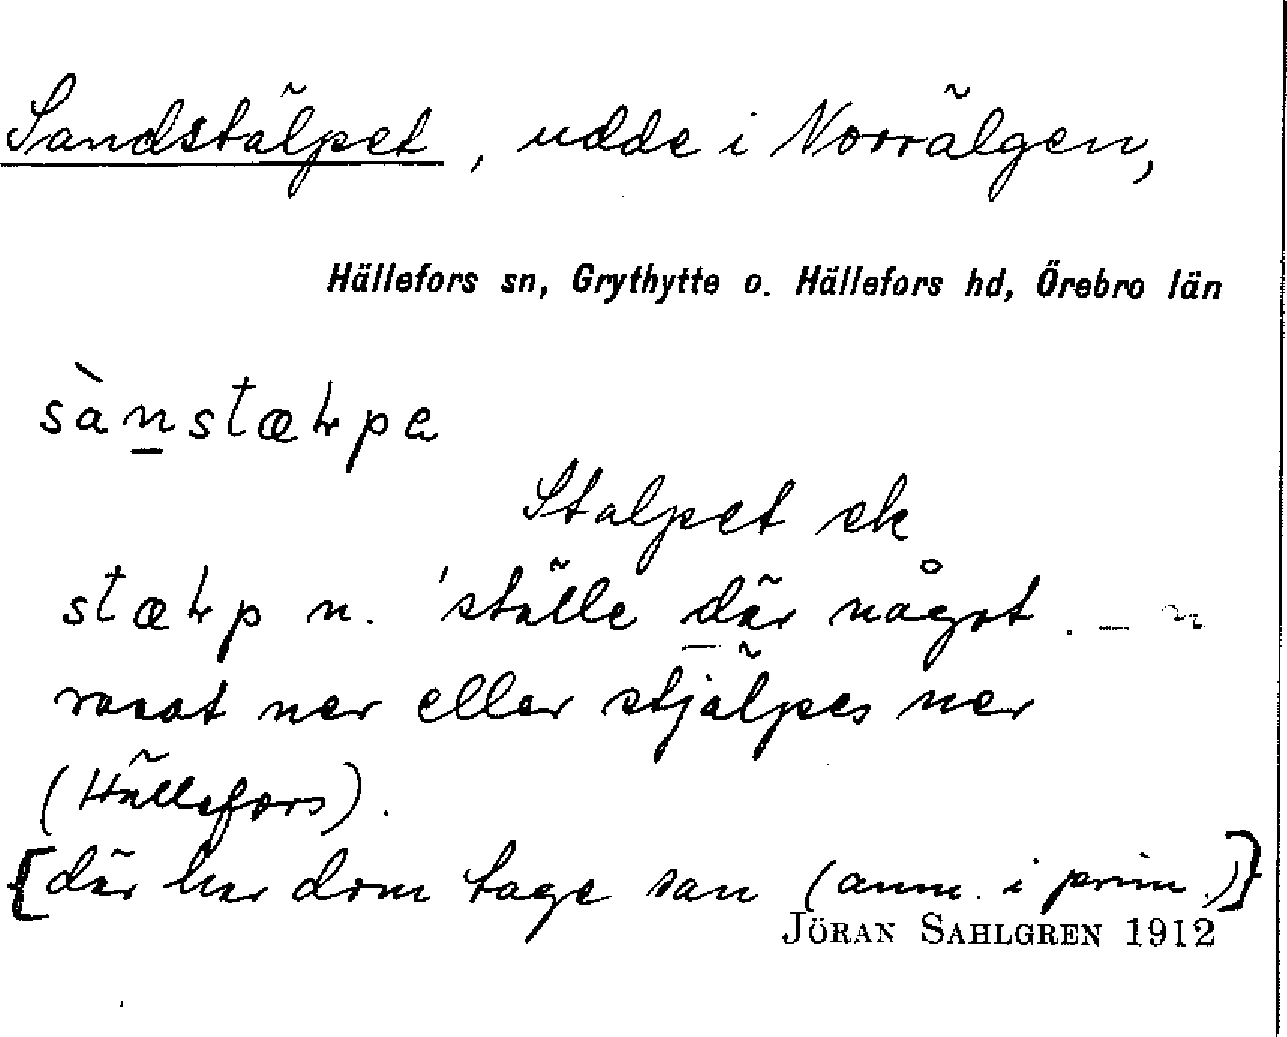 Sandstälpet, udde i Norrälgen,
Hällefors sn, Grythytte o. Hällefors hd, Örebro län
sànstæłpe
Stalpet ek
stæłp n. 'ställe där något
rasat ner eller stjälpes ner
(Hällefors).
[där har dom tage san (anm. i prim.)]
JÖRAN SAHLGREN 1912